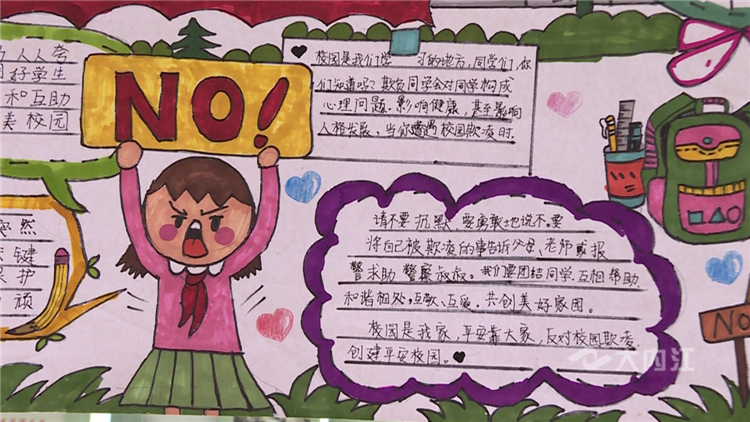 人人夸
好学生
和互助
美校园
NO!
校园是我们学 习的地方,同学们,你
们知道吗?欺负同学会对同学构成
心理问题、影响健康,甚至影响
人格发展、当你遭遇校园欺凌时,
然
键
护
顽
请不要沉默,要勇敢地说不。要
将自己被欺凌的事告诉父母、老师或报
警求助警察叔叔。我们要团结同学互相帮助
和谐相处,互敬、互爱,共创美好家园。
校园是我家,平安靠大家,反对校园欺凌
创建平安校园。
No
大内江